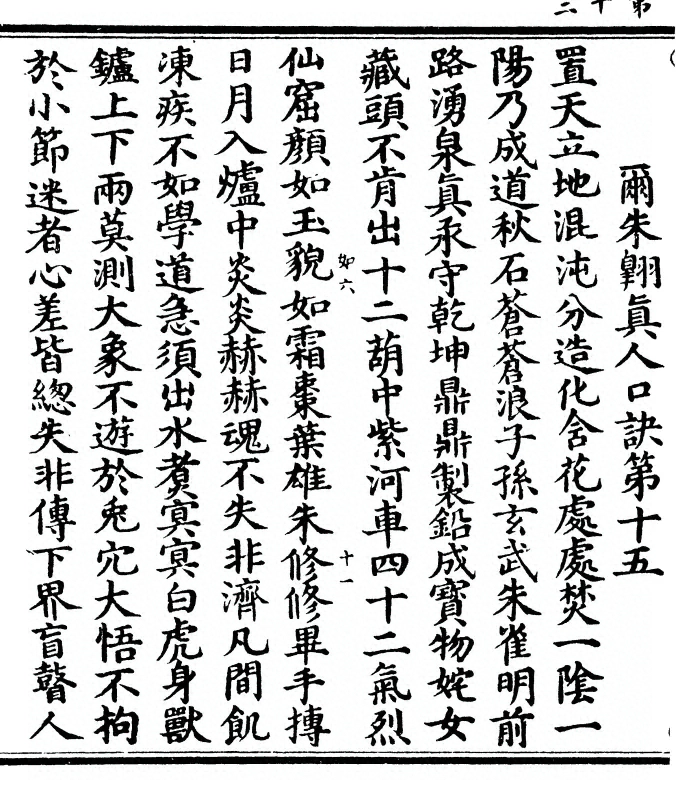 第十二
爾朱翱眞人口訣第十五
置天立地混沌分造化含花處處焚一陰一
陽乃成道秋石蒼蒼浪子孫玄武朱雀明前
路湧泉眞汞守乾坤鼎鼎製鉛成寶物姹女
藏頭不肯出十二葫中紫河車四十二氣烈
如六
十一
仙窟顏如玉貌如霜棗葉雄朱修修畢手摶
日月入爐中炎炎赫赫魂不失非濟凡間飢
凍疾不如學道急須出水煑㝠㝠白虎身獸
鑪上下兩莫測大象不遊於兎穴大悟不拘
於小節迷者心差皆總失非傳下界盲瞽人